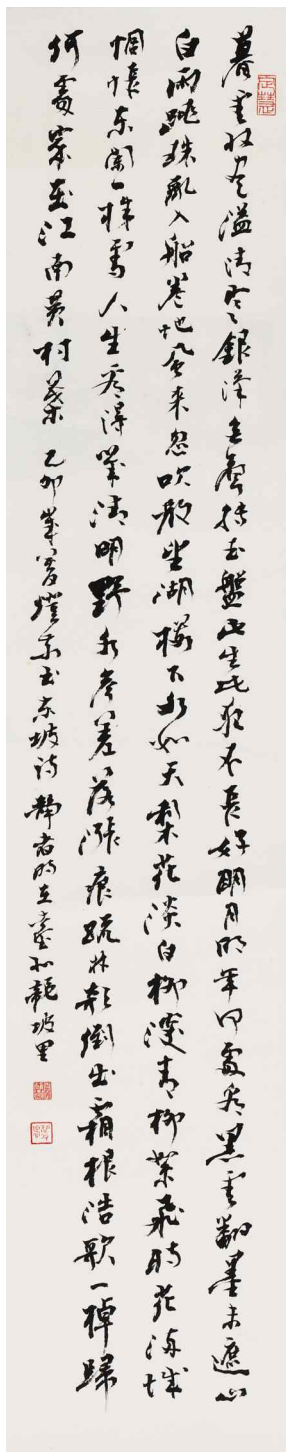 暮雲收盡溢清寒銀漢無聲轉玉盤此生此夜不長好明月明年何處看黑雲翻墨未遮山
白雨跳珠亂入船卷地風來忽吹散望湖樓下水如天梨花淡白柳深青柳絮飛時花滿城
惆悵東闌一株雪人生看得幾清明野水參差落漲痕疏林欹倒出霜根浩歌一棹歸
何處家在江南黃村葉 乙卯歲莫燈書東坡詩 靜者時在臺北龍坡里